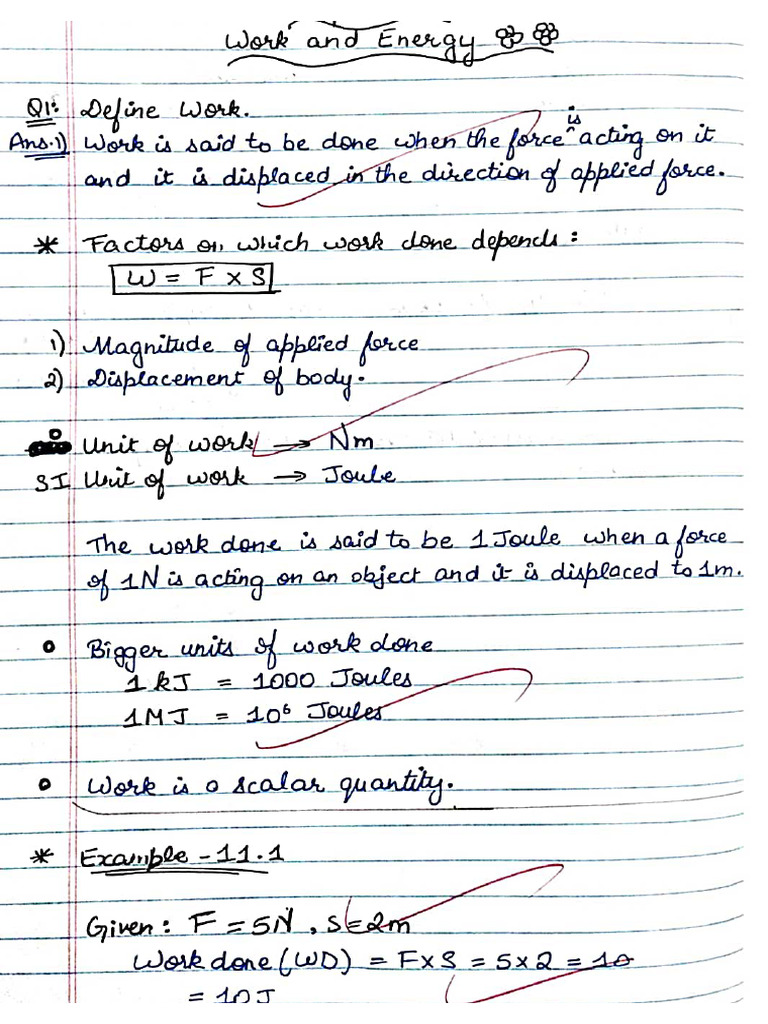 Work and Energy
Q1: Define Work.
Ans.1) Work is said to be done when the force is acting on it
and it is displaced in the direction of applied force.
* Factors on which work done depends:
W = F x S
1) Magnitude of applied force
2) Displacement of body.
Unit of work → Nm
SI Unit of work → Joule
The work done is said to be 1 Joule when a force
of 1N is acting on an object and it is displaced to 1m.
Bigger units of work done
1 kJ = 1000 Joules
1 MJ = 10⁶ Joules
Work is a scalar quantity.
* Example - 11.1
Given: F = 5N, S = 2m
Work done (WD) = F x S = 5 x 2 = 10
= 10J